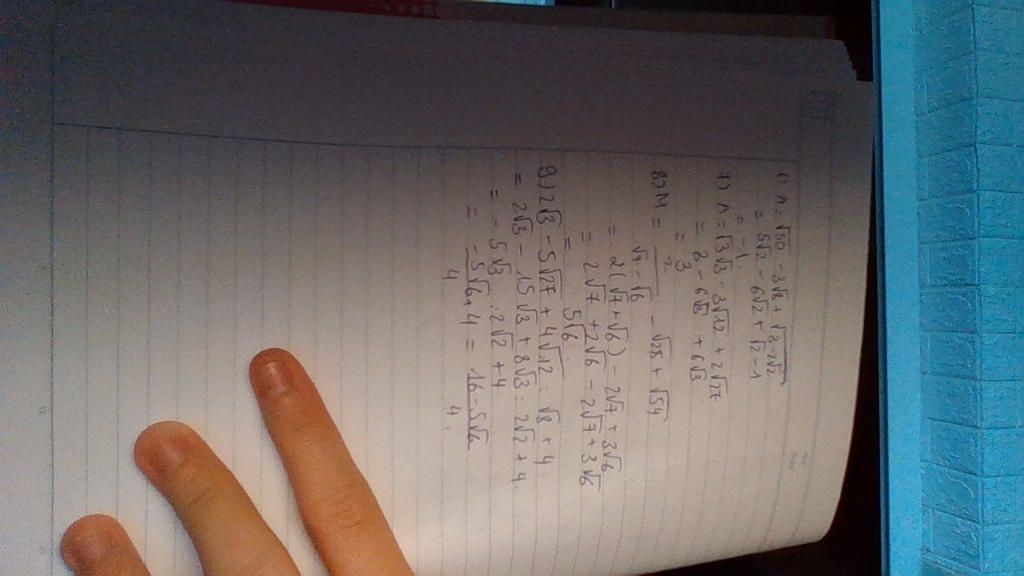 1) A = √50 - 3√8 + √3-2√2
= 5√2 - 6√2 + √2 - 1
= -1
7) A = √3√3 - 3√12 + 2√27
= 3 - 6√3 + 6√3
= 3
8) M = 2/(√7 - √6) - √28 + √54
= 2(√7+√6) - 2√7 + 3√6
= 2√7 + 2√6 - 2√7 + 3√6
= 5√6.
9) 2√3 - 5√27 + 4√12 : √8 + 4
= 2√3 - 15√3 + 8√3 : 2√2 + 4.
= -5√3 : 2√2 + 4
= -5√6/4 + 4 = 16-5√6/4.